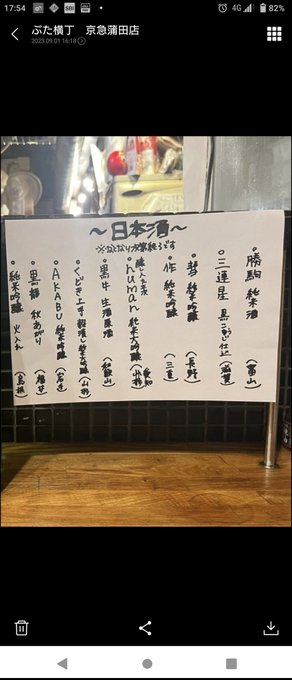 17:54
4G
82%
ぶた横丁 京急蒲田店
2023.09.01 16:18
～日本酒～
※なくなり次第終了です
・勝駒 純米酒 (富山)
・三連星 黒こうじ仕込 (滋賀)
・彗 純米吟醸 (長野)
・作 純米吟醸 (三重)
醸し人九平次
・human 純米大吟醸 愛知
・黒牛 生酒原酒 (和歌山)
・くどき上手 穀潰し 純米大吟醸 (山形)
・AKABU 純米吟醸 (岩手)
・黒龍 秋あがり (福井)
・純米吟醸 火入れ (島根)